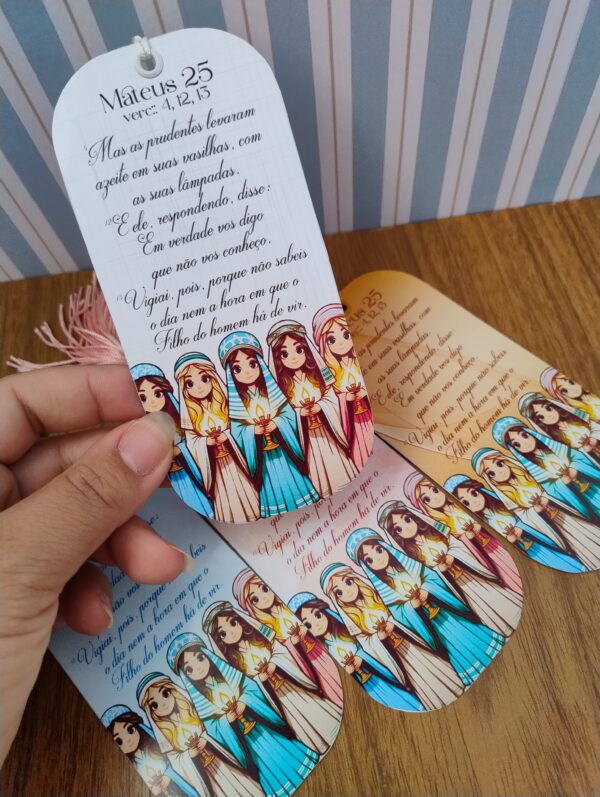 Mateus 25
verc:: 4, 12, 13
⁴Mas as prudentes levaram
azeite em suas vasilhas, com
as suas lâmpadas.
¹²E ele, respondendo, disse:
Em verdade vos digo
que não vos conheço.
¹³Vigiai, pois, porque não sabeis
o dia nem a hora em que o
Filho do homem há de vir.
eus 25
4, 12, 13
prudentes levaram
suas vasilhas, com
as suas lâmpadas.
E ele, respondendo, disse:
Em verdade vos digo
que não vos conheço.
Vigiai, pois, porque não sabeis
o dia nem a hora em que o
Filho do homem há de vir.
Vigiai, pois, porque não sabeis
o dia nem a hora em que o
Filho do homem há de vir.
disse:
digo
não vos
Vigiai, pois, porque beis
o dia nem a hora em que o
Filho do homem há de vir.